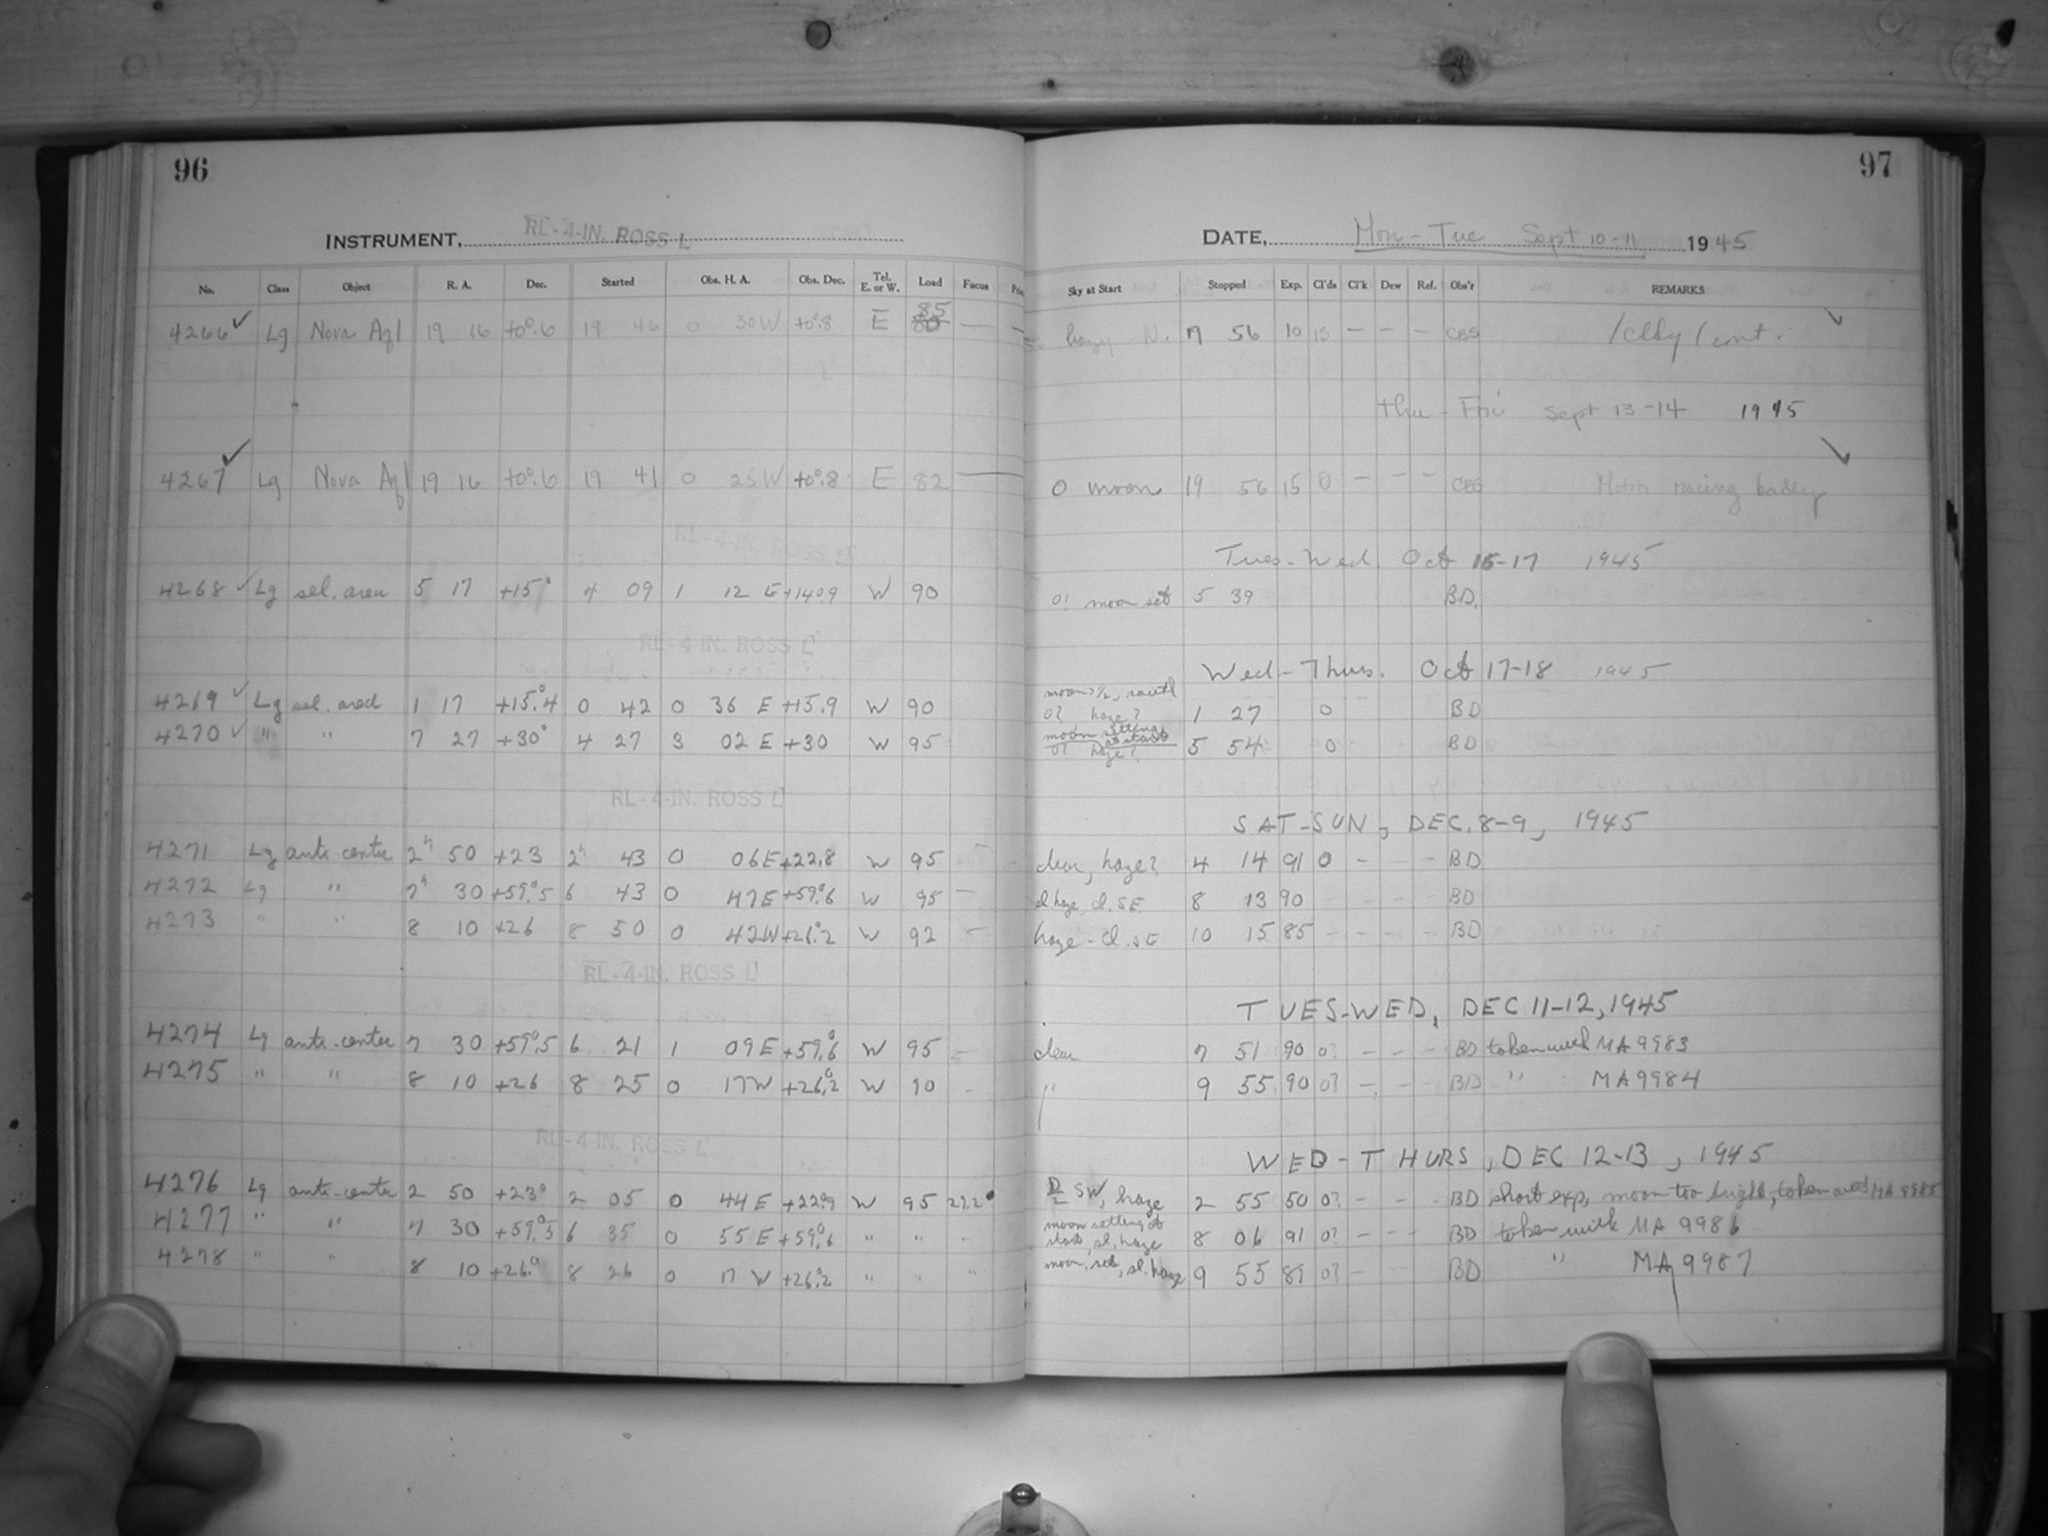 96
INSTRUMENT, RL-4-IN. ROSS L
No. Class Object R. A. Dec. Started Obs. H. A. Obs. Dec. Tel. E. or W. Load Focus
4266 ✓ Lg Nova Aql 19 16 +0°.6 19 46 0 30W +0°.8 E 85 80 —
4267 ✓ Lg Nova Aql 19 16 +0°.6 19 41 0 25W +0°.8 E 82 —
RL-4-IN. ROSS L
4268 ✓ Lg sel. area 5 17 +15° 4 09 1 12 E +14°.9 W 90
RL-4-IN. ROSS L
4269 ✓ Lg sel. area 1 17 +15°.4 0 42 0 36 E +15.9 W 90
4270 ✓ " " 7 27 +30° 4 27 3 02 E +30 W 95
RL-4-IN. ROSS L
4271 Lg anti-center 2h 50 +23 2h 43 0 06E +22.8 W 95 -
4272 Lg " 7h 30 +59°.5 6 43 0 47E +59°.6 W 95 —
4273 " " 8 10 +26 8 50 0 42W +26°.2 W 92 -
RL-4-IN. ROSS L
4274 Lg anti-center 7 30 +59°.5 6 21 1 09E +59°.6 W 95 -
4275 " " 8 10 +26 8 25 0 17W +26°.2 W 90 -
RL-4-IN. ROSS L
4276 Lg anti-center 2 50 +23° 2 05 0 44E +22°.9 W 95 27.2
4277 " " 7 30 +59°.5 6 35 0 55E +59°.6 " " "
4278 " " 8 10 +26° 8 26 0 17 W +26°.2 " " "
97
DATE, Mon-Tue Sept 10-11 1945
Sky at Start Stopped Exp. Cl'ds Cl'k Dew Ref. Obs'r REMARKS
hazy N. 19 56 10 — — — CBS /cldy/
Thu-Fri Sept 13-14 1945
0 moon 19 56 15 0 — — — CBS Motor racing badly
Tues-Wed Oct 16-17 1945
0? moon set 5 39 BD.
Wed-Thurs. Oct 17-18 1945
moon south
0? haze? 1 27 0 BD
moon setting at start
0? haze? 5 54 0 BD
SAT-SUN, DEC. 8-9, 1945
clear, haze? 4 14 91 0 - - - BD
sl haze, cl. SE. 8 13 90 - - - - BD
haze - cl. SE 10 15 85 - - - - BD
TUES-WED, DEC 11-12, 1945
clear 7 51 90 0? - - - BD taken with MA 9983
" 9 55 90 0? - - - BD " MA 9984
WED-THURS, DEC 12-13, 1945
SW, haze 2 55 50 0? - - - BD short exp, moon too bright, taken with MA 9985
moon setting at
start, sl. haze 8 06 91 0? - - - BD taken with MA 9986
moon set, sl. haze 9 55 89 0? - - BD " MA 9987